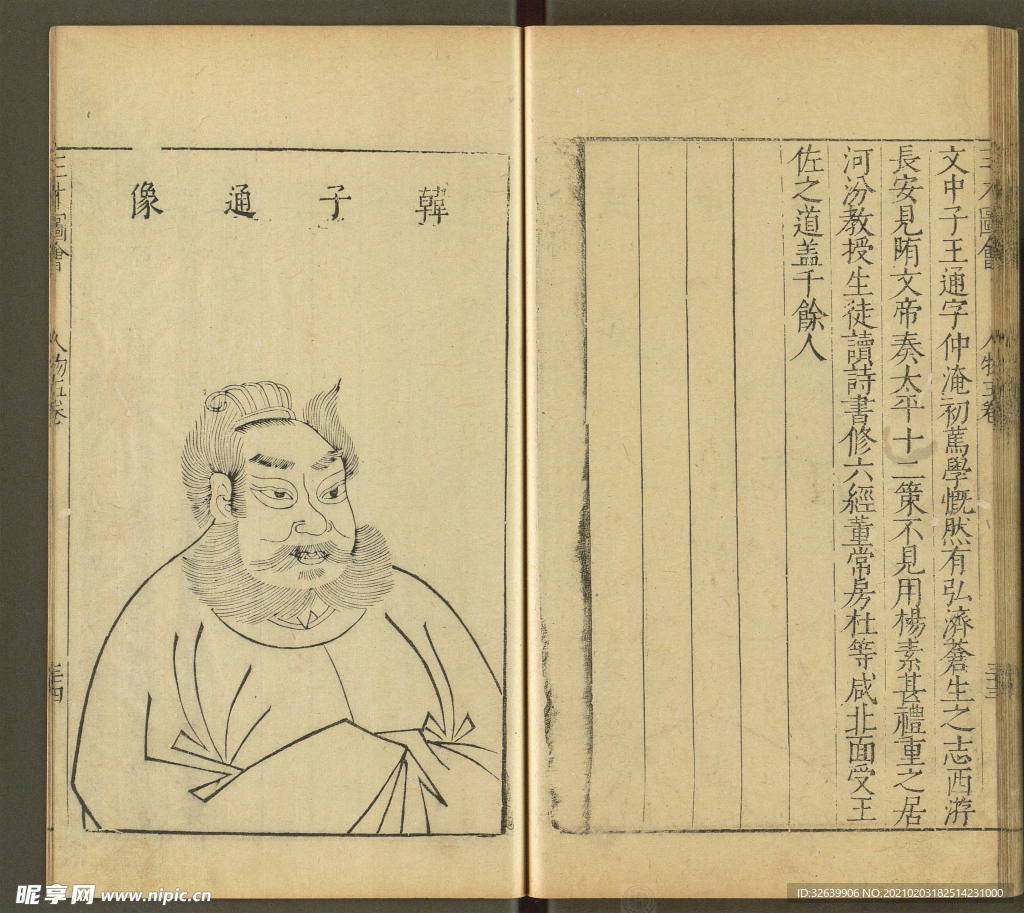 三才圖會
人物五卷
三十三
文中子王通字仲淹初篤學慨然有弘濟蒼生之志西游
長安見隋文帝奏太平十二策不見用楊素甚禮重之居
河汾教授生徒讀詩書修六經董常房杜等咸北面受王
佐之道盖千餘人
韓子通像
三才圖會
人物五卷
三十四
昵享网 www.nipic.cn
ID:32639906 NO:20210203182514231000